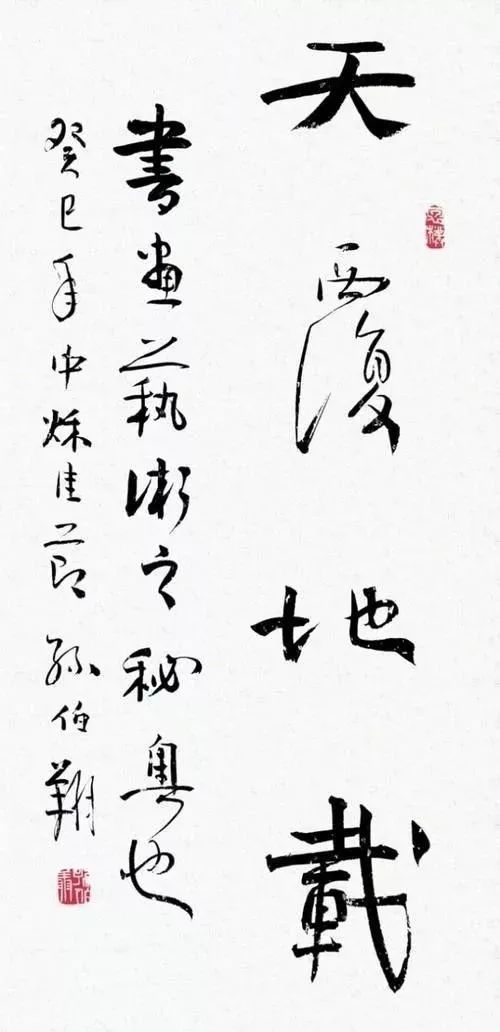 天覆地載
書畫藝術之秘奧也
癸巳年中秌佳節孫伯翔